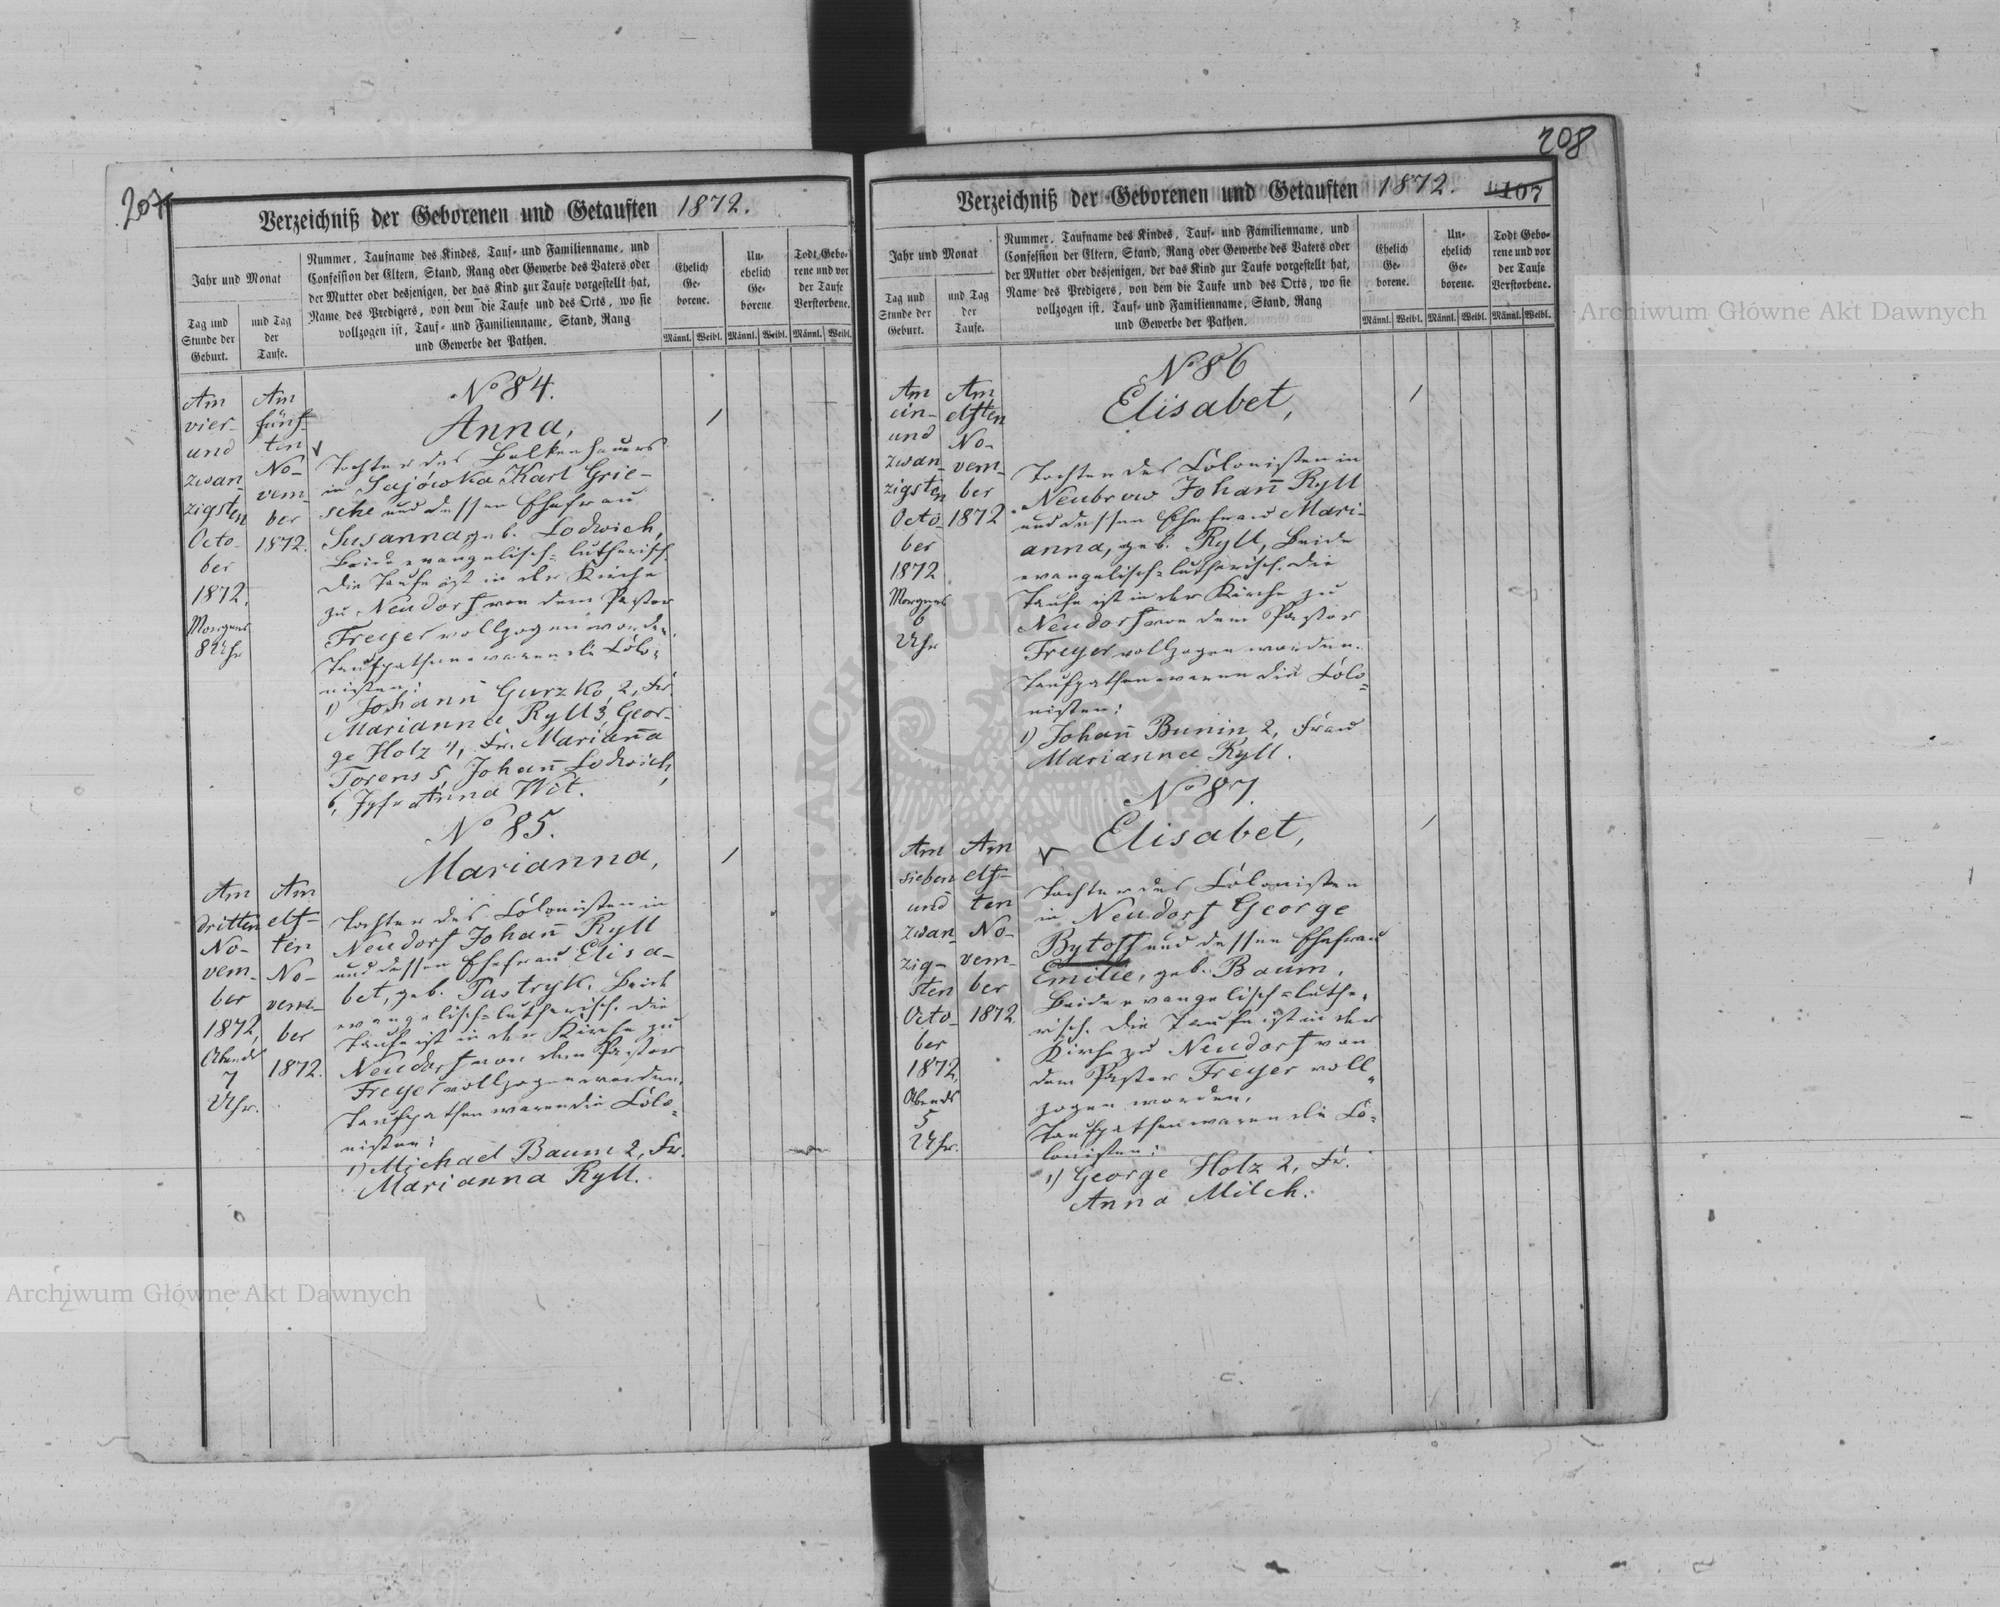 207
Verzeichniß der Geborenen und Getauften 1872.
Jahr und Monat
Tag und
Stunde der
Geburt.
und Tag
der
Taufe.
Nummer, Taufname des Kindes, Tauf- und Familienname, und
Confession der Eltern, Stand, Rang oder Gewerbe des Vaters oder
der Mutter oder desjenigen, der das Kind zur Taufe vorgestellt hat,
Name des Predigers, von dem die Taufe und des Orts, wo sie
vollzogen ist, Tauf- und Familienname, Stand, Rang
und Gewerbe der Pathen.
Ehelich
Ge-
borene.
Un-
ehelich
Ge-
borene
Todt Gebo-
rene und vor
der Taufe
Verstorbene.
Männl. Weibl. Männl. Weibl. Männl. Weibl.
Am
vier-
und
zwan-
zigsten
Octo-
ber
1872,
Morgens
8 Uhr
Am
fünf-
ten
No-
vem-
ber
1872.
No 84.
Anna,
Tochter des Balkenhauers
in Sajówka Karl Grie-
sche und dessen Ehefrau
Susanna, geb. Lodwich,
Beide evangelisch-lutherisch.
Die Taufe ist in der Kirche
zu Neudorf von dem Pastor
Freyer vollzogen worden.
Taufpathen waren die Colo-
nisten:
1) Johann Gurzko, 2, Fr.
Marianna Ryll 3, Geor-
ge Holz 4, Fr. Marianna
Torens 5, Johann Lodwich,
6, Jgfr Anna Wit.
No 85.
Marianna,
Am
dritten
No-
vem-
ber
1872,
Abends
7
Uhr.
Am
elf-
ten
No-
vem-
ber
1872.
Tochter des Colonisten in
Neudorf Johann Ryll
und dessen Ehefrau Elisa-
bet, geb. Pastryk. Beide
evangelisch-lutherisch. Die
Taufe ist in der Kirche zu
Neudorf von dem Pastor
Freyer vollzogen worden.
Taufpathen waren die Colo-
nisten:
1) Michael Baum 2, Fr.
Marianna Ryll.
208
Verzeichniß der Geborenen und Getauften 1872.
107
Jahr und Monat
Tag und
Stunde der
Geburt.
und Tag
der
Taufe.
Nummer, Taufname des Kindes, Tauf- und Familienname, und
Confession der Eltern, Stand, Rang oder Gewerbe des Vaters oder
der Mutter oder desjenigen, der das Kind zur Taufe vorgestellt hat,
Name des Predigers, von dem die Taufe und des Orts, wo sie
vollzogen ist, Tauf- und Familienname, Stand, Rang
und Gewerbe der Pathen.
Ehelich
Ge-
borene.
Un-
ehelich
Ge-
borene.
Todt Gebo-
rene und vor
der Taufe
Verstorbene.
Männl. Weibl. Männl. Weibl. Männl. Weibl.
Am
ein-
und
zwan-
zigsten
Octo-
ber
1872
Morgens
6
Uhr
Am
elften
No-
vem-
ber
1872
No 86
Elisabet,
Tochter des Colonisten in
Neubrow Johann Ryll
und dessen Ehefrau Mari-
anna, geb. Ryll, Beide
evangelisch-lutherisch. Die
Taufe ist in der Kirche zu
Neudorf von dem Pastor
Freyer vollzogen worden.
Taufpathen waren die Colo-
nisten:
1) Johann Bunin 2, Frau
Marianna Ryll.
No 87.
Elisabet,
Am
sieben
und
zwan-
zig-
sten
Octo-
ber
1872,
Abends
5
Uhr.
Am
elf-
ten
No-
vem-
ber
1872.
Tochter des Colonisten
in Neudorf George
Bytoff und dessen Ehefrau
Emilie, geb. Baum,
Beide evangelisch-luthe-
risch. Die Taufe ist in der
Kirche zu Neudorf von
dem Pastor Freyer voll-
zogen worden.
Taufpathen waren die Co-
lonisten:
1) George Holz 2, Fr.
Anna Milch.
Archiwum Główne Akt Dawnych
Archiwum Główne Akt Dawnych